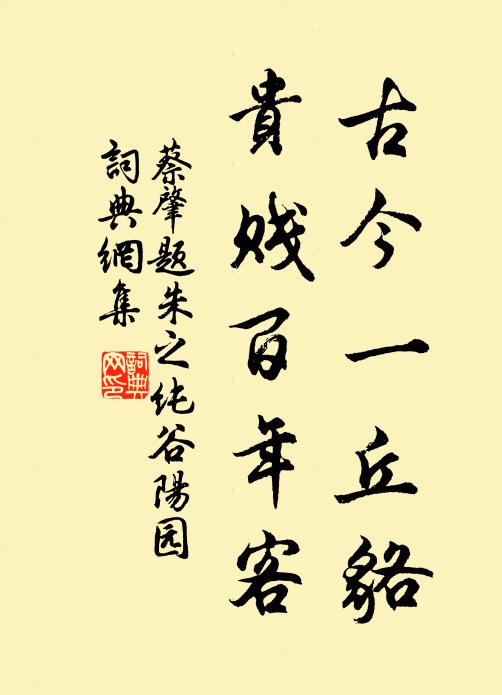 古今一丘貉
貴賤百年客
蔡肇题朱之纯谷陽园
詞典網集
詞典网印